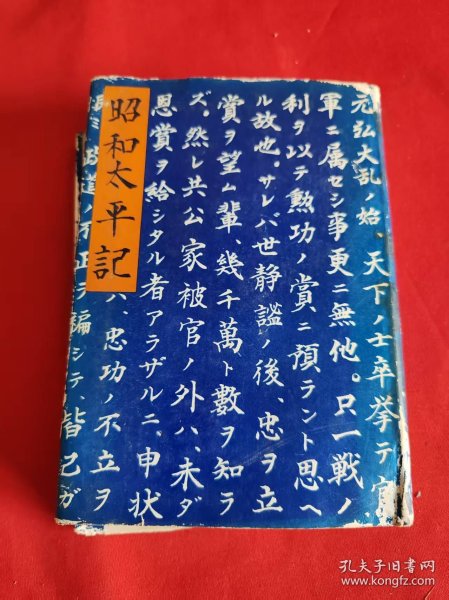 昭和太平記
元弘大乱ノ始、天下ノ士卒挙テ官
軍ニ属セシ事更ニ無他。只一戦ノ
利ヲ以テ勲功ノ賞ニ預ラント思ヘ
ル故也。サレバ世静謐ノ後、忠ヲ立
賞ヲ望ム輩、幾千萬ト數ヲ知ラ
ズ。然レ共公家被官ノ外ハ、未ダ
恩賞ヲ給シタル者アラザルニ、申状
ハ、忠功ノ不立ヲ
ミ政道ノ不正ヲ編シテ、皆己ガ
孔夫子旧书网
www.kongfz.com